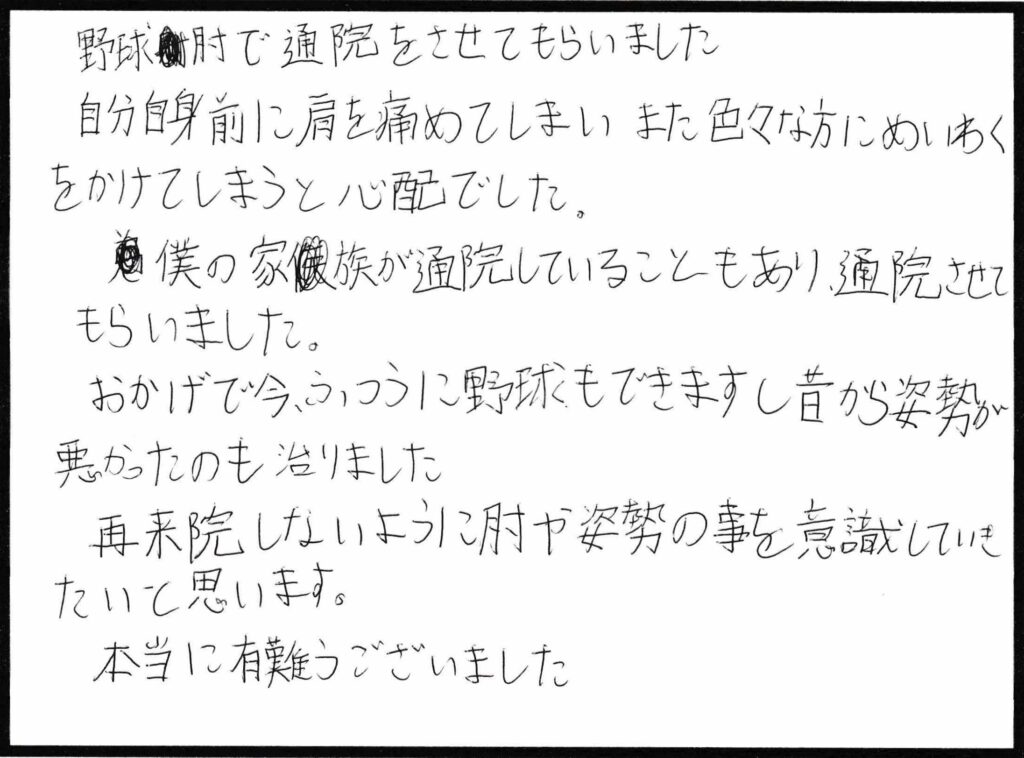 野球肘で通院をさせてもらいました
自分自身前に肩を痛めてしまい また色々な方にめいわく
をかけてしまうと心配でした。
僕の家族が通院していることもあり、通院させて
もらいました。
おかげで今、ふつうに野球もできますし昔から姿勢が
悪かったのも治りました
再来院しないように肘や姿勢の事を意識していき
たいと思います。
本当に有難うございました